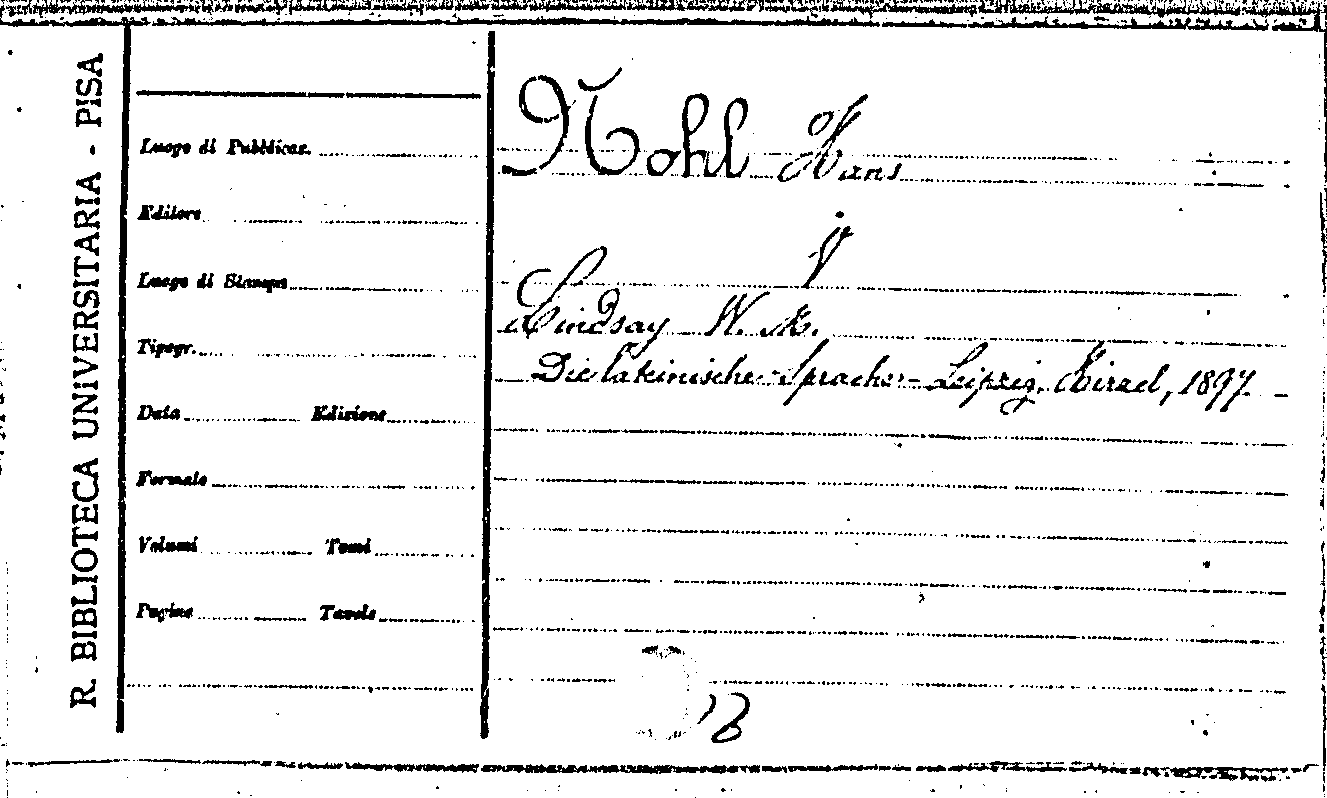 R. BIBLIOTECA UNIVERSITARIA - PISA
Luogo di Pubblicaz.
Editore
Luogo di Stampa
Tipogr.
Data Edizione
Formato
Volumi Tomi
Pagine Tavole
Nohl Hans
V
Lindsay W. M.
Die lateinische Sprache - Leipzig, Hirzel, 1897.
B